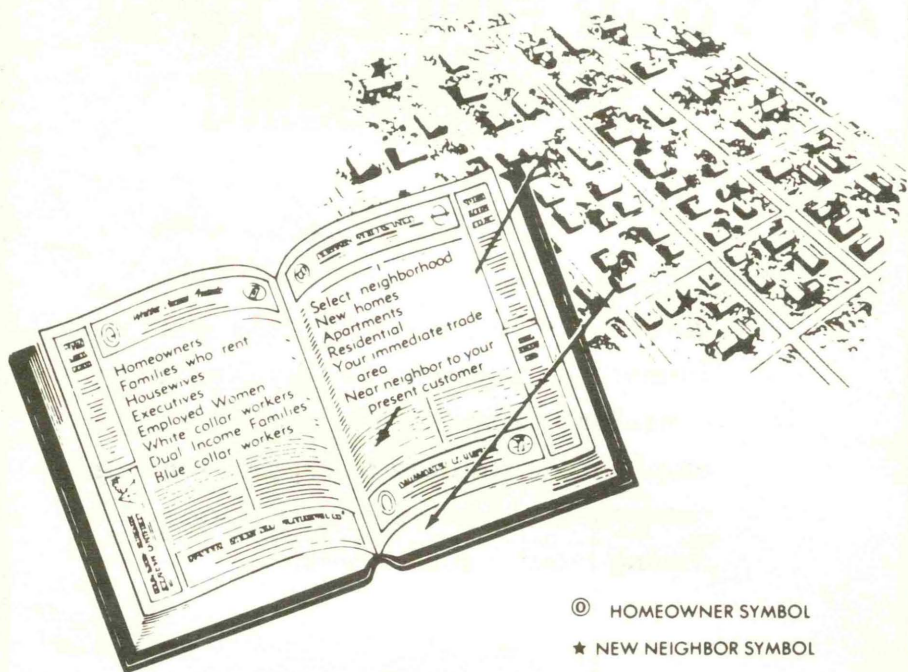 Homeowners
Families who rent
Housewives
Executives
Employed Women
White collar workers
Dual Income Families
Blue collar workers
Select neighborhood
New homes
Apartments
Residential
Your immediate trade
area
Near neighbor to your
present customer
⓪ HOMEOWNER SYMBOL
★ NEW NEIGHBOR SYMBOL